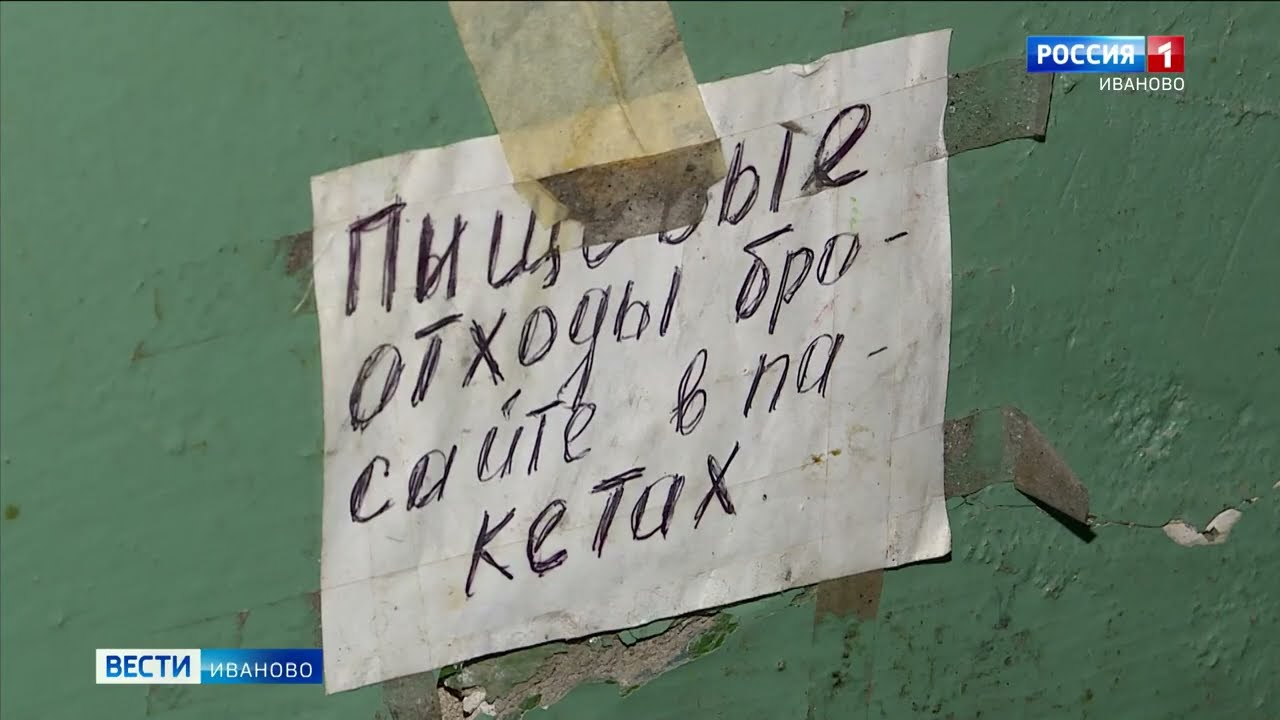 РОССИЯ 1
ИВАНОВО
Пищевые
отходы бро-
сайте в па-
кетах.
ВЕСТИ ИВАНОВО